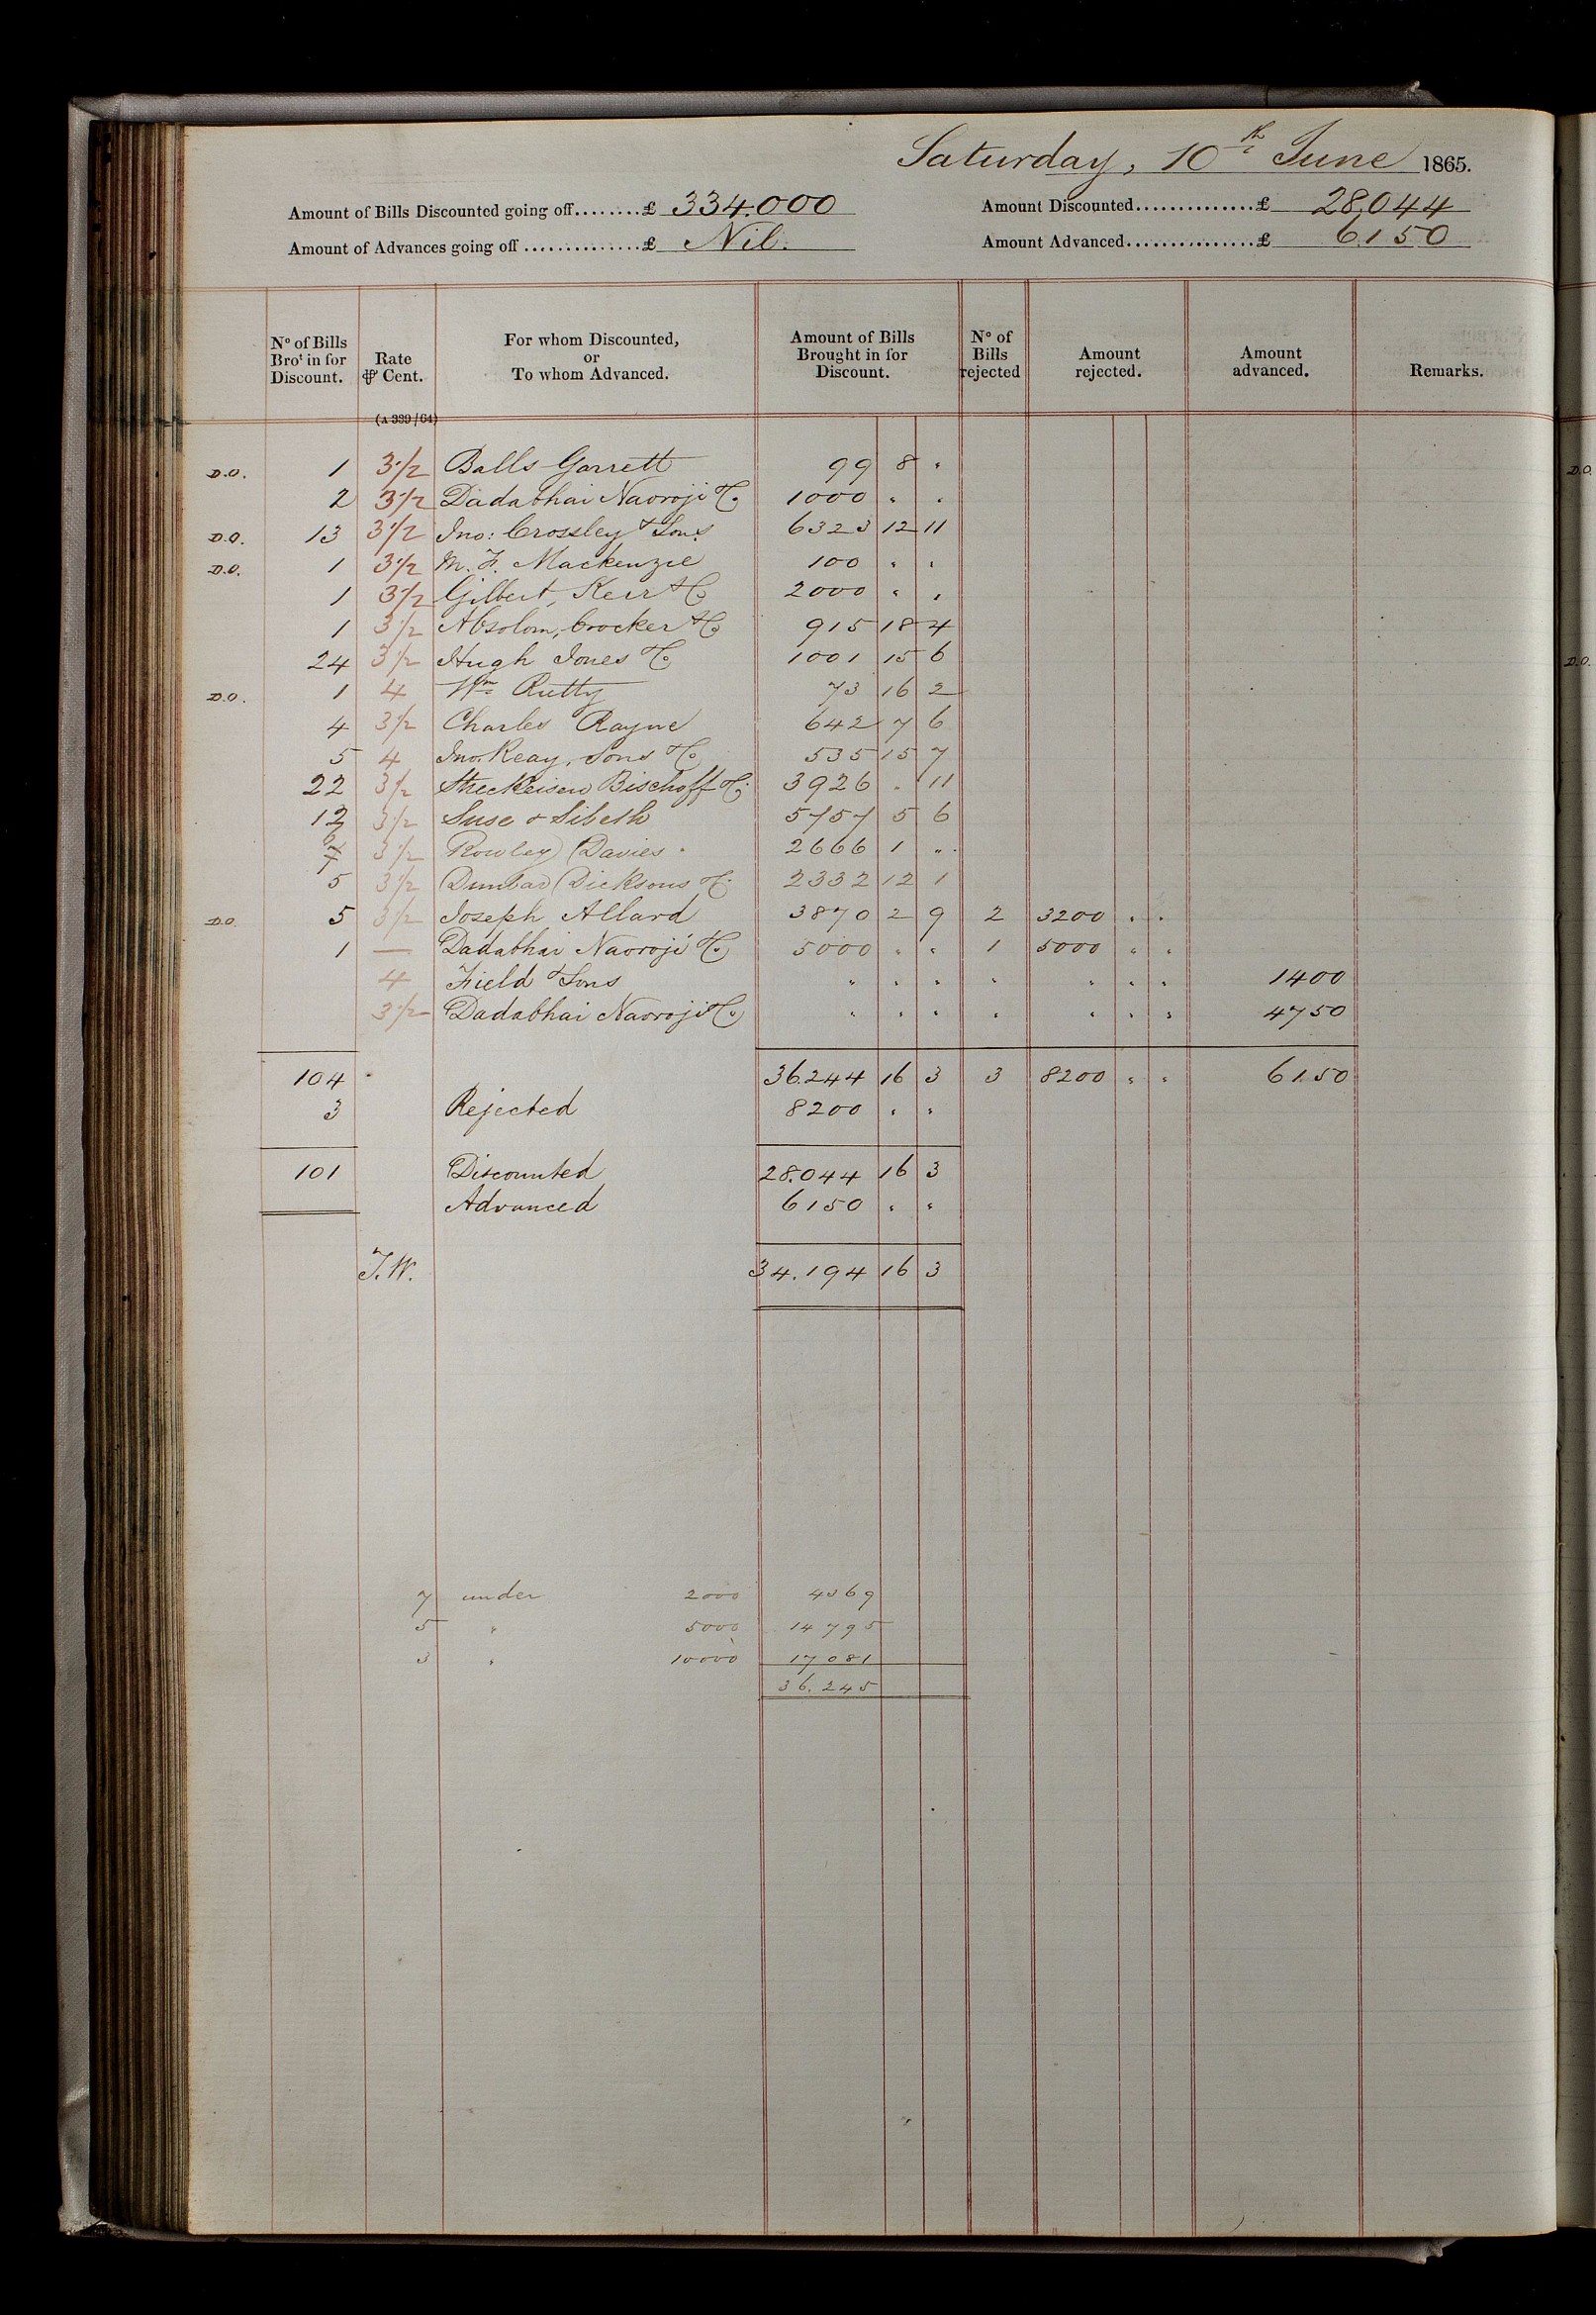 Saturday, 10th June 1865.
Amount of Bills Discounted going off........£ 334.000 Amount Discounted..............£ 28,044
Amount of Advances going off ..............£ Nil. Amount Advanced...............£ 6,150
No of Bills Brot in for Discount. Rate ⅌ Cent. For whom Discounted, or To whom Advanced. Amount of Bills Brought in for Discount. No of Bills rejected Amount rejected. Amount advanced. Remarks.
(A 339/64)
D.O. 1 3½ Balls Garrett 99 8 "
2 3½ Dadabhai Naoroji & Co 1000 " "
D.O. 13 3½ Jno: Crossley & Sons 6323 12 11
D.O. 1 3½ M. F. Mackenzie 100 " "
1 3½ Gilbert, Keir & Co 2000 " "
1 3½ Absolom, Crocker & Co 915 18 4
24 3½ Hugh Jones & Co 1001 15 6
D.O. 1 4 Wm Rutty 73 16 2
4 3½ Charles Rayne 642 7 6
5 4 Jno. Keay, Sons & Co 535 15 7
22 3½ Streckeisen Bischoff & Co 3926 " 11
12 3½ Suse & Sibeth 5757 5 6
3½ Rowley Davies 2666 1 "
5 3½ Dunbar Dicksons & Co 2332 12 1
D.O. 5 3½ Joseph Allard 3870 2 9 2 3200 " "
1 — Dadabhai Naoroji & Co 5000 " " 1 5000 " "
4 Field & Sons " " " " " " " 1400
3½ Dadabhai Naoroji & Co " " " " " " " 4750
104 36.244 16 3 3 8200 " " 6150
3 Rejected 8200 " "
101 Discounted 28.044 16 3
Advanced 6150 " "
J.W. 34.194 16 3
7 under 2000 4369
5 " 5000 14795
3 " 10000 17081
36.245
D.O.
D.O.